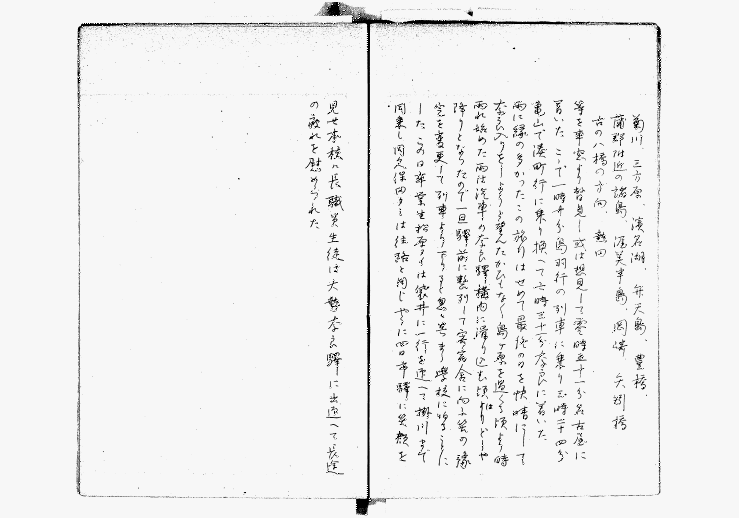 菊川、三方原、濱名湖、弁天島、豊橋、
蒲郡附近の諸島、渥美半島、岡崎、矢矧橋
古の八橋の方向、熱田
等を車窓より瞥見し或は想見して零時五十一分名古屋に
着いた、こゝで一時廿分鳥羽行の列車に乗り三時二十四分
亀山で湊町行に乗り換へて六時三十一分奈良に着いた、
雨に縁の多かったこの旅りはせめて最後の日を快晴にして
奈良入りをしようと望んだかひもなく島ヶ原を過ぐる頃より時
雨れ始めた雨は汽車の奈良驛構内に滑り込む頃はどしや
降りとなつたので一旦驛前に整列して寄宿舎に向ふ筈の豫
定を変更して列車より下りると思ひ思ひに学校に帰ることに
した この日卒業生松原るいは袋井に一行を迎へて掛川まで
同乗し 久保田クミは往路と同じやうに四日市驛に笑顔を
見せ本校は長職員生徒は大勢奈良驛に出迎へて長途
の疲れを慰められた